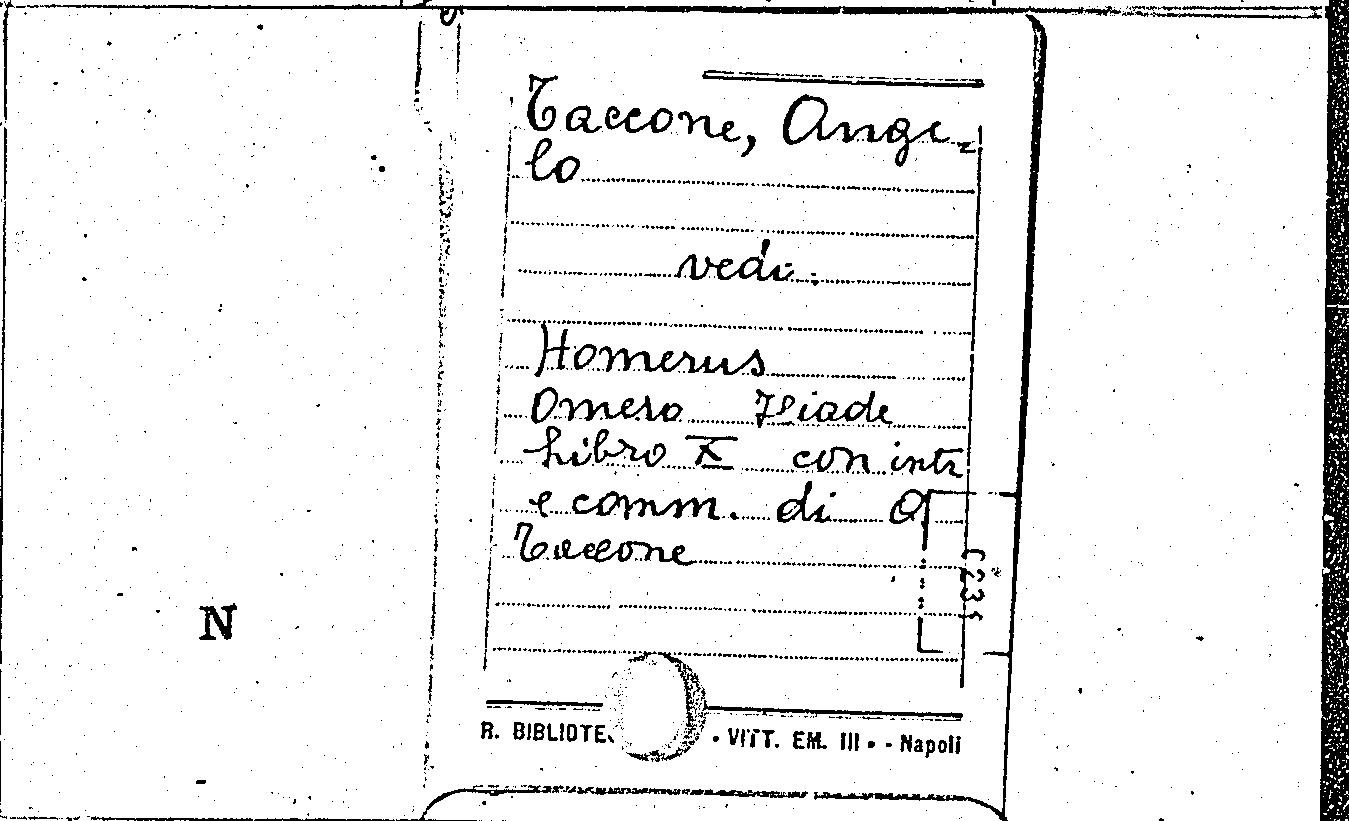 Taccone, Ange-
lo
vedi:
Homerus
Omero Iliade
Libro X con intr
e comm. di A
Taccone
N
R. BIBLIOTE • VITT. EM. III • - Napoli